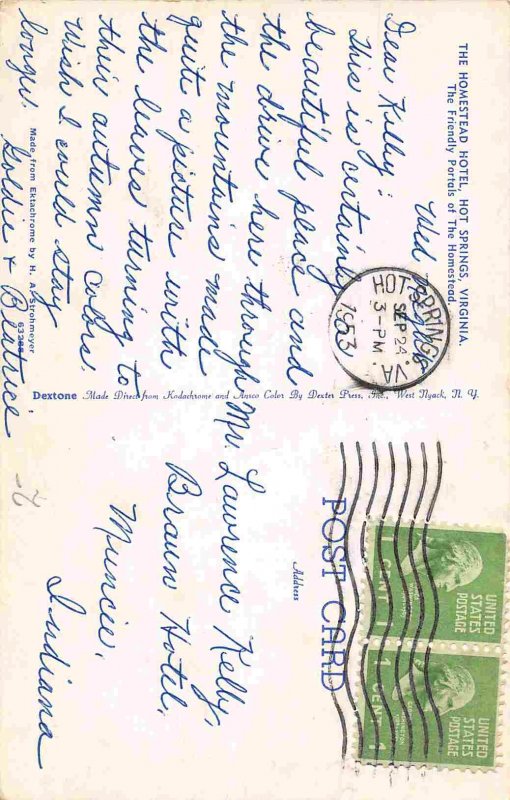 THE HOMESTEAD HOTEL, HOT SPRINGS, VIRGINIA.
The Friendly Portals of The Homestead.
Wed
Dear Kelly:
This is certainly a
beautiful place and
the drive here through
the mountains made
quite a picture with
the leaves turning to
their autumn colors.
Wish I could stay
longer.
Goldie + Beatrice
Made from Ektachrome by H. A. Strohmeyer
63288
Dextone Made Direct from Kodachrome and Ansco Color By Dexter Press, Inc., West Nyack, N. Y.
HOT SPRINGS VA.
SEP 24
3-PM
1953
POST CARD
Address
Mr. Lawrence Kelly,
Braun Hotel,
Muncie,
Indiana
2-
UNITED
STATES
POSTAGE
1 CENT 1
UNITED
STATES
POSTAGE
1 CENT 1